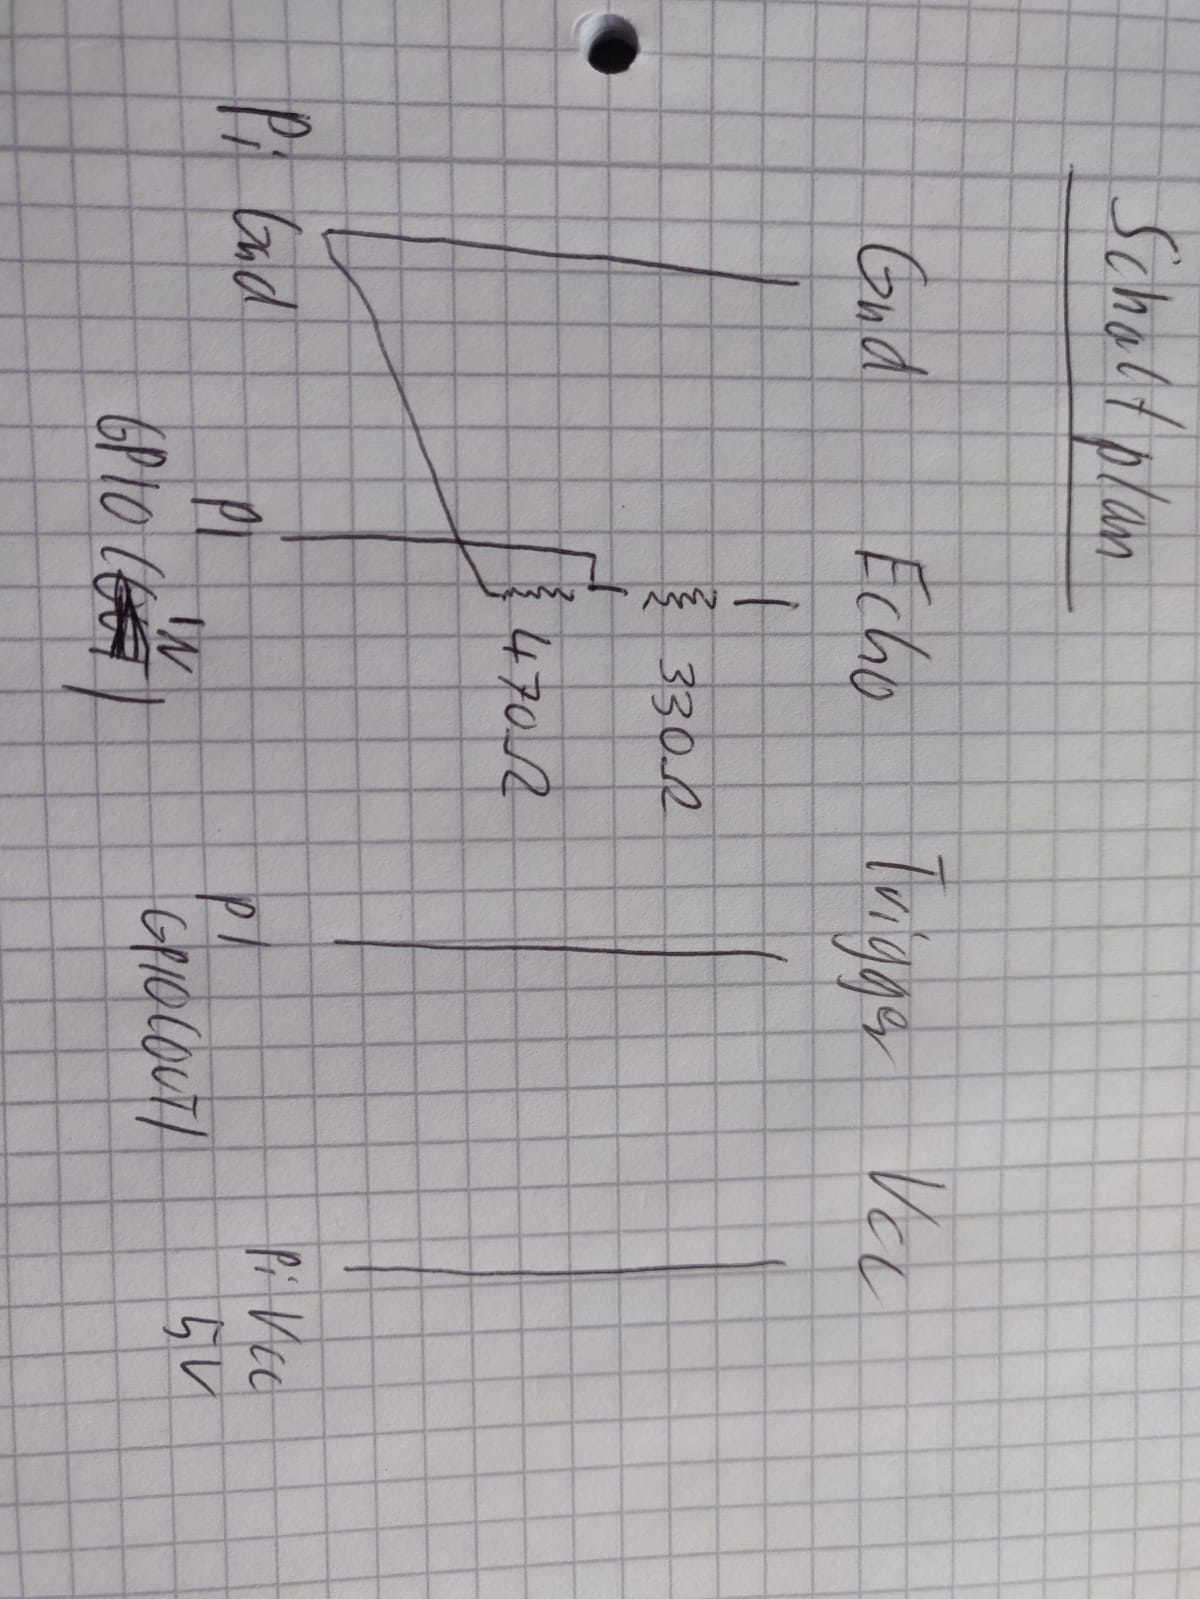 Schaltplan
Gnd Echo Trigger Vcc
330Ω
470Ω
Pi Gnd PI PI Pi Vcc
GPIO (IN) GPIO(OUT) 5V